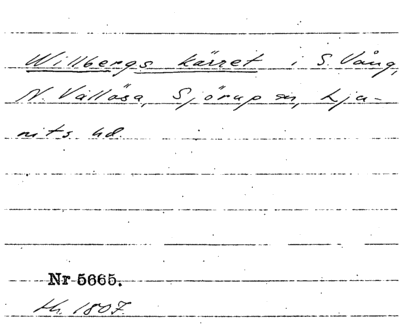 Willbergs kärret i S. Vång,
N. Vallösa, Sjörup sn, Lju-
nits hd.
Nr 5665.
th. 1807.